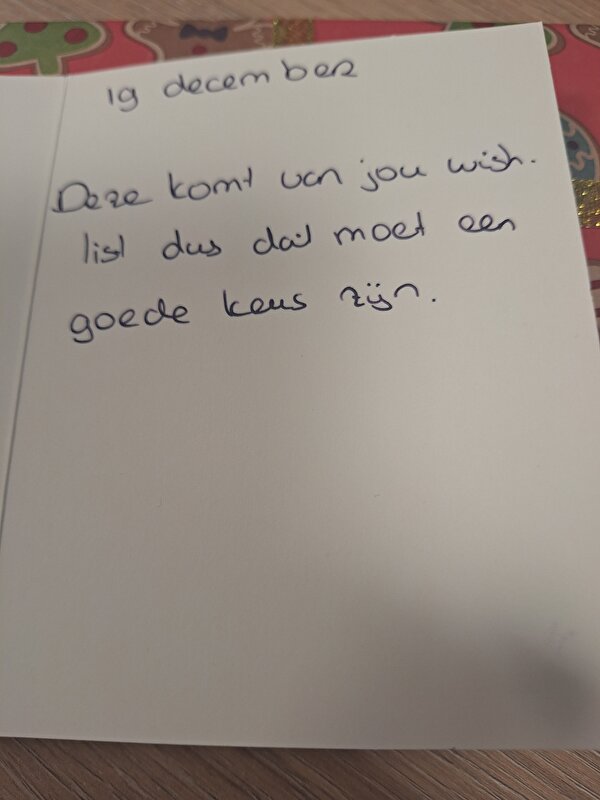 19 december
Deze komt van jou wish.
list dus dat moet een
goede keus zijn.